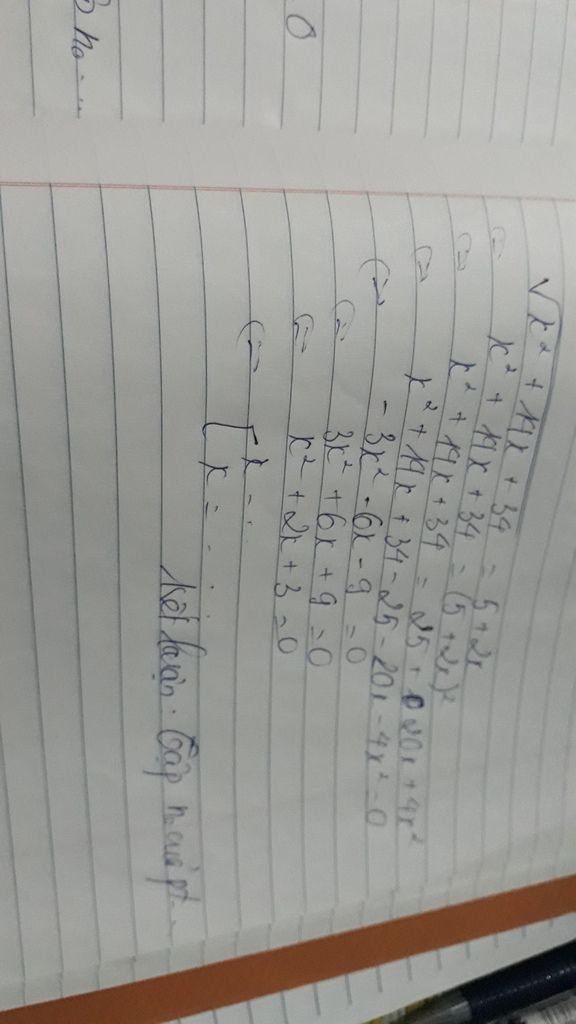 √x² + 14x + 34 = 5 + 2x
(=) x² + 14x + 34 = (5 + 2x)²
(=) x² + 14x + 34 = 25 + 20x + 4x²
(=) x² + 14x + 34 - 25 - 20x - 4x² = 0
(=) - 3x² - 6x - 9 = 0
(=) 3x² + 6x + 9 = 0
(=) x² + 2x + 3 = 0
(=) [ x = ...
x = ...
Kết luận. Tập n₀ của pt
0
n₀ - ...